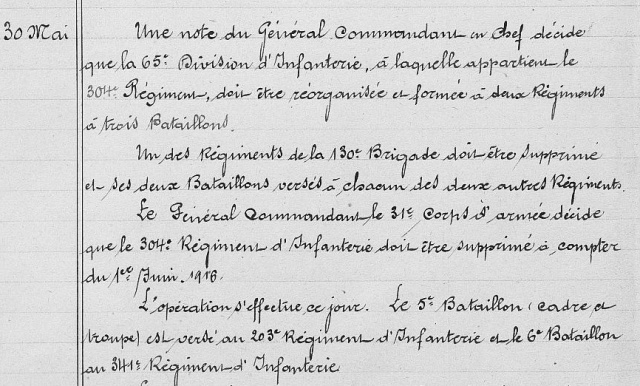 30 Mai Une note du Général Commandant en Chef décide
que la 65e Division d'Infanterie, à laquelle appartient le
304e Régiment, doit être réorganisée et formée à deux Régiments
à trois Bataillons.
Un des Régiments de la 130e Brigade doit être supprimé
et ses deux Bataillons versés à chacun des deux autres Régiments.
Le Général Commandant le 31e Corps d'armée décide
que le 304e Régiment d'Infanterie doit être supprimé à compter
du 1er Juin 1916.
L'opération s'effectue ce jour. Le 5e Bataillon (cadre et
troupe) est versé au 203e Régiment d'Infanterie et le 6e Bataillon
au 341e Régiment d'Infanterie